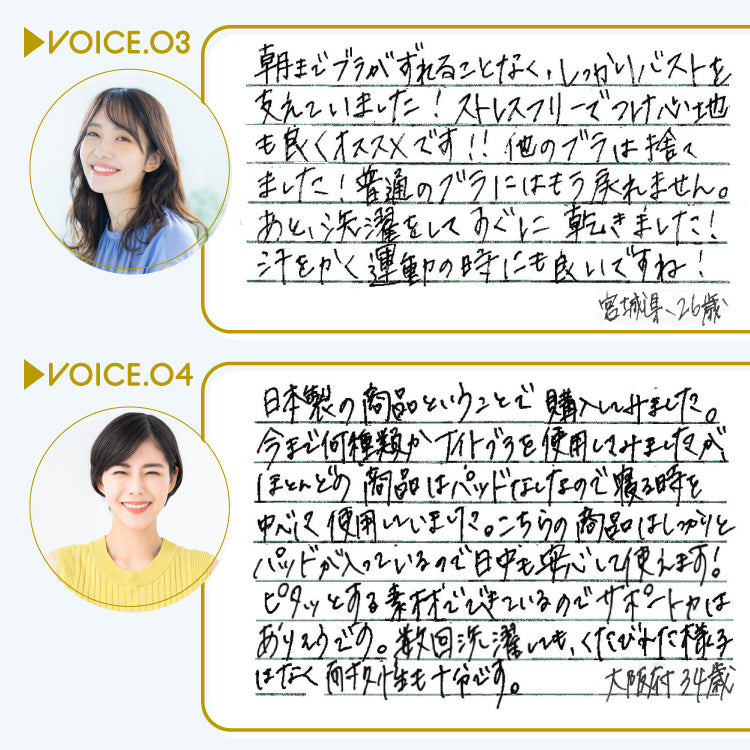 VOICE.03
朝までブラがずれることなく、しっかりバストを
支えていました!ストレスフリーでつけ心地
も良くオススメです!!他のブラは捨て
ました!普通のブラにはもう戻れません。
あと、洗濯をしてすぐに乾きました!
汗をかく運動の時にも良いですね!
宮城県、26歳
VOICE.04
日本製の商品ということで購入してみました。
今まで何種類かナイトブラを使用してみましたが
ほとんどの商品はパッドなしなので寝る時を
中心に使用していました。こちらの商品はしっかりと
パッドが入っているので日中も安心して使えます!
ピタッとする素材でできているのでサポート力は
ありそうです。数回洗濯しても、くたびれた様子
はなく耐久性も十分です。
大阪府34歳